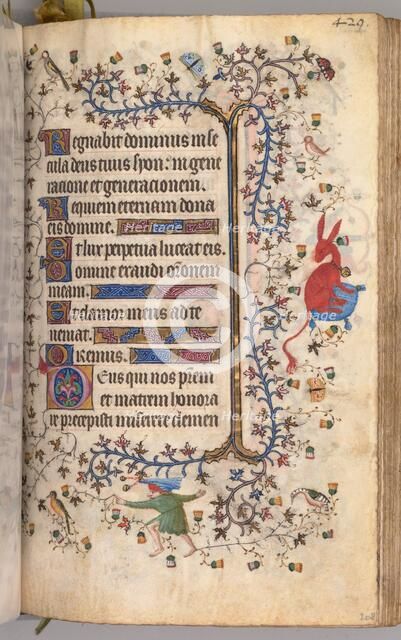 429.
Regnabit dominus in se
cula deus tuus syon: in gene
racione et generacionem.
Requiem eternam dona
eis domine.
Et lux perpetua luceat eis.
Domine exaudi oronem
meam.
Et clamor meus ad te
veniat.
Oremus.
Deus qui nos prem
et matrem honora
re precepisti miserere clemen
208
Heritage
Heritage
Heritage
Heritage
Heritage
Heritage